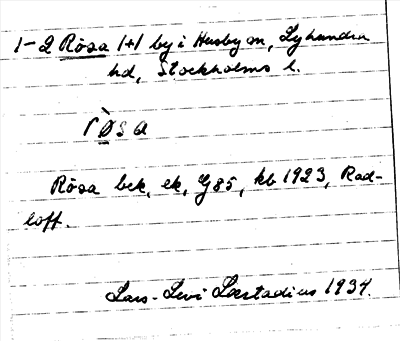 1-2 Rösa 1+1 by i Husby sn, Lyhundra
hd, Stockholms l.
rø̀sa
Rösa bek, ek, G85, kb 1923, Rad-
loff.
Lars-Levi Læstadius 1934.